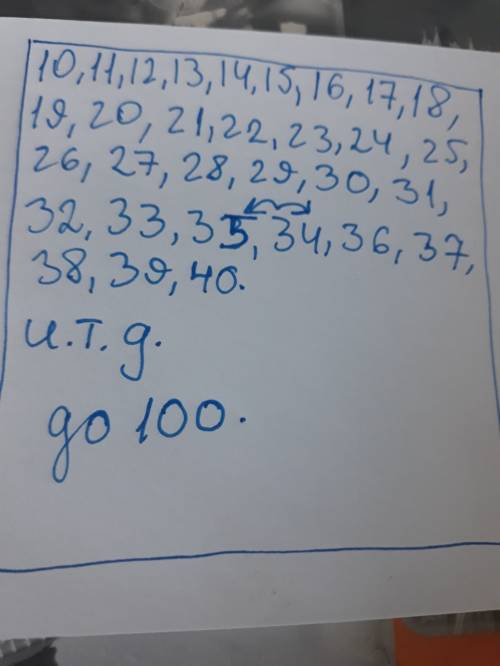 10, 11, 12, 13, 14, 15, 16, 17, 18,
19, 20, 21, 22, 23, 24, 25,
26, 27, 28, 29, 30, 31,
32, 33, 35, 34, 36, 37,
38, 39, 40.
и.т.д.
до 100.